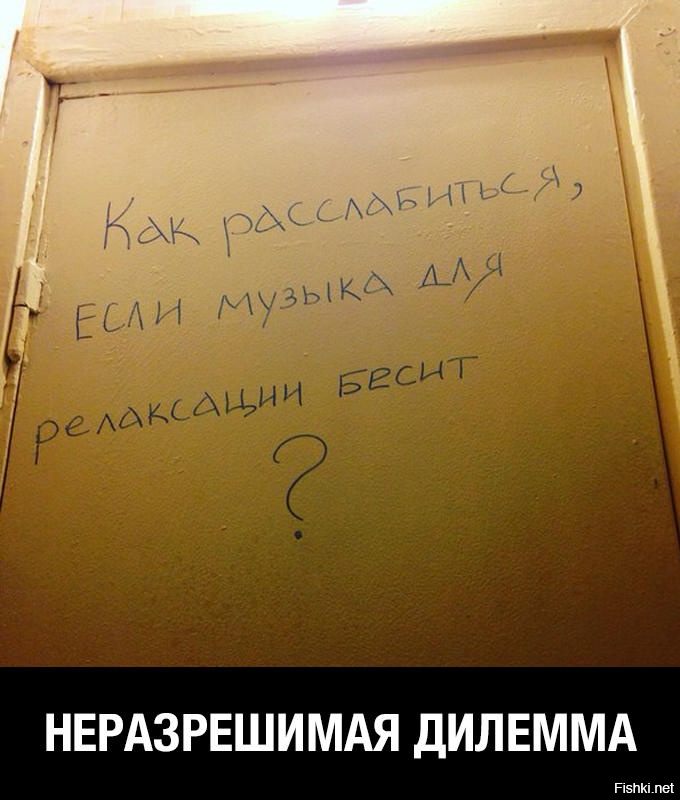 Как расслабиться,
если музыка для
релаксации бесит
?
НЕРАЗРЕШИМАЯ ДИЛЕММА
Fishki.net